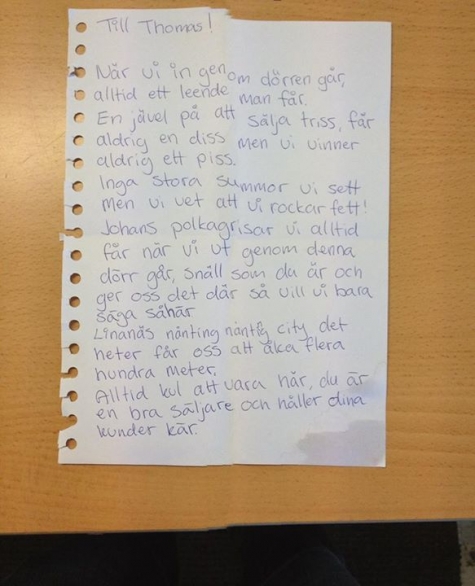 Till Thomas!
När vi in genom dörren går,
alltid ett leende man får.
En jävel på att sälja triss, får
aldrig en diss men vi vinner
aldrig ett piss.
Inga stora summor vi sett
men vi vet att vi rockar fett!
Johans polkagrisar vi alltid
får när vi ut genom denna
dörr går, snäll som du är och
ger oss det där så vill vi bara
säga såhär
Linanäs nånting nånting city det
heter får oss att åka flera
hundra meter.
Alltid kul att vara här, du är
en bra säljare och håller dina
kunder kär.